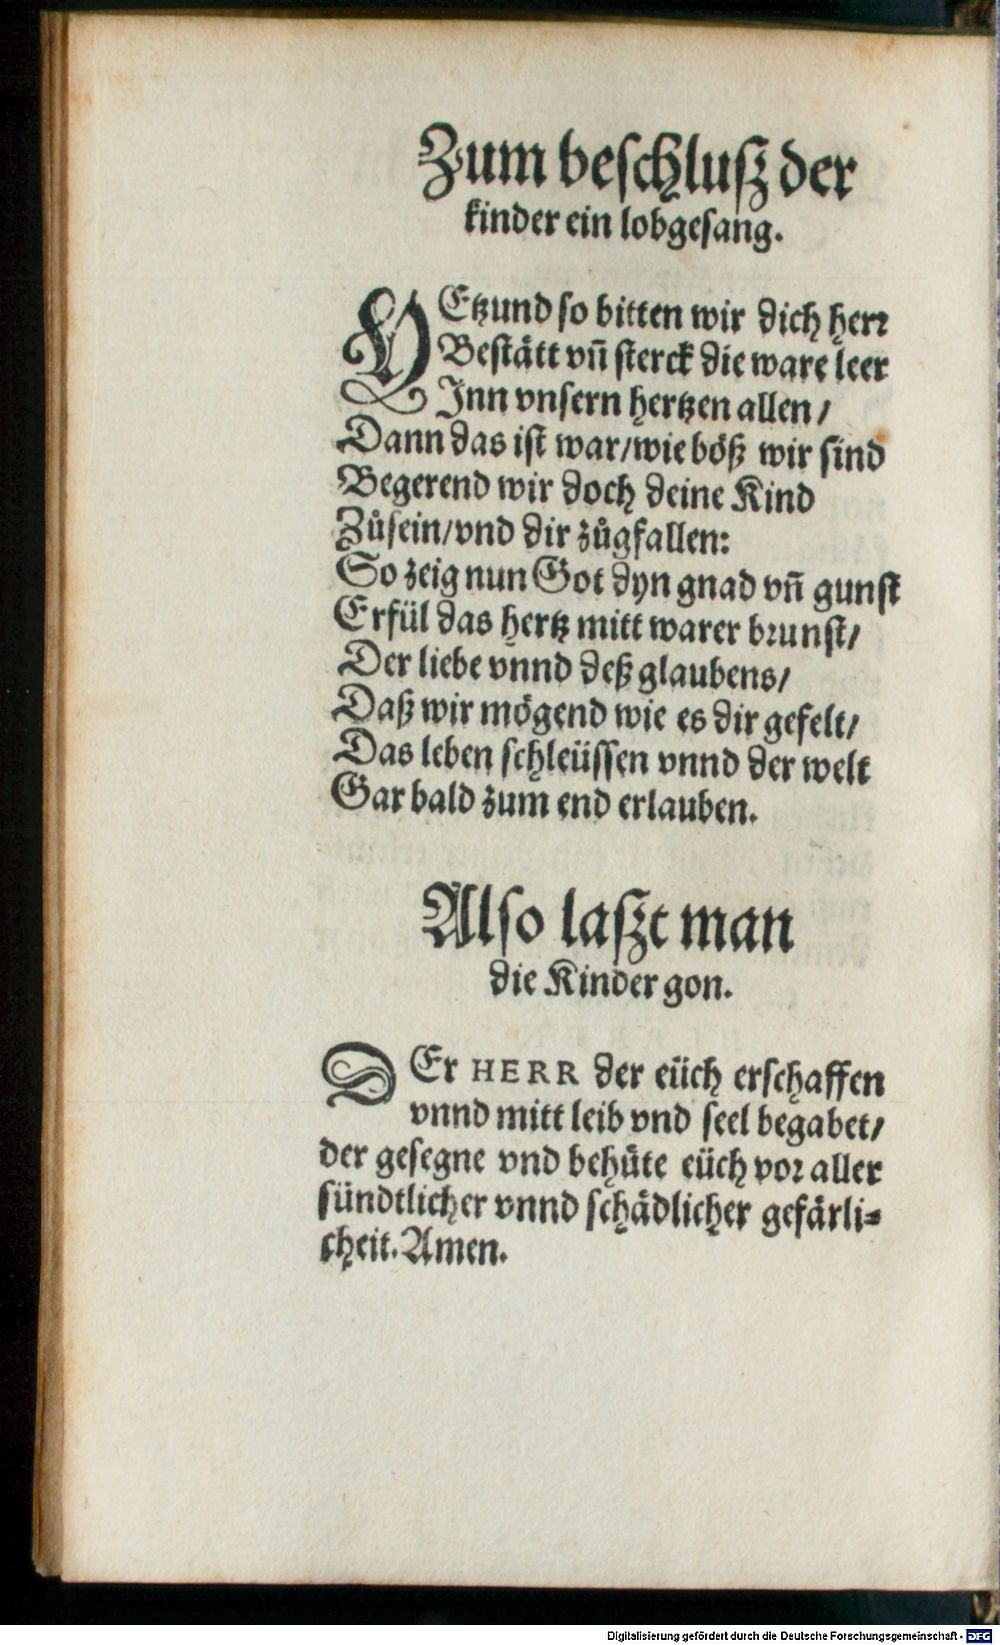 Zum beſchluſz der
kinder ein lobgeſang.
YEtzund ſo bitten wir dich herꝛ
Beſtaͤtt vn̄ ſterck die ware leer
Inn vnſern hertzen allen /
Dann das iſt war/wie boͤß wir ſind
Begerend wir doch deine Kind
Zuͦſein/vnd dir zuͦgfallen:
So zeig nun Got dyn gnad vn̄ gunſt
Erfül das hertz mitt warer bꝛunſt/
Der liebe vnnd deß glaubens/
Daß wir moͤgend wie es dir gefelt/
Das leben ſchleüſſen vnnd der welt
Gar bald zum end erlauben.
Alſo laſzt man
die Kinder gon.
DEr HERR der eüch erſchaffen
vnnd mitt leib vnd ſeel begabet/
der geſegne vnd behuͤte eüch voꝛ aller
ſündtlicher vnnd ſchaͤdlicher gefaͤrli⸗
cheit. Amen.
Digitalisierung gefördert durch die Deutsche Forschungsgemeinschaft - DFG